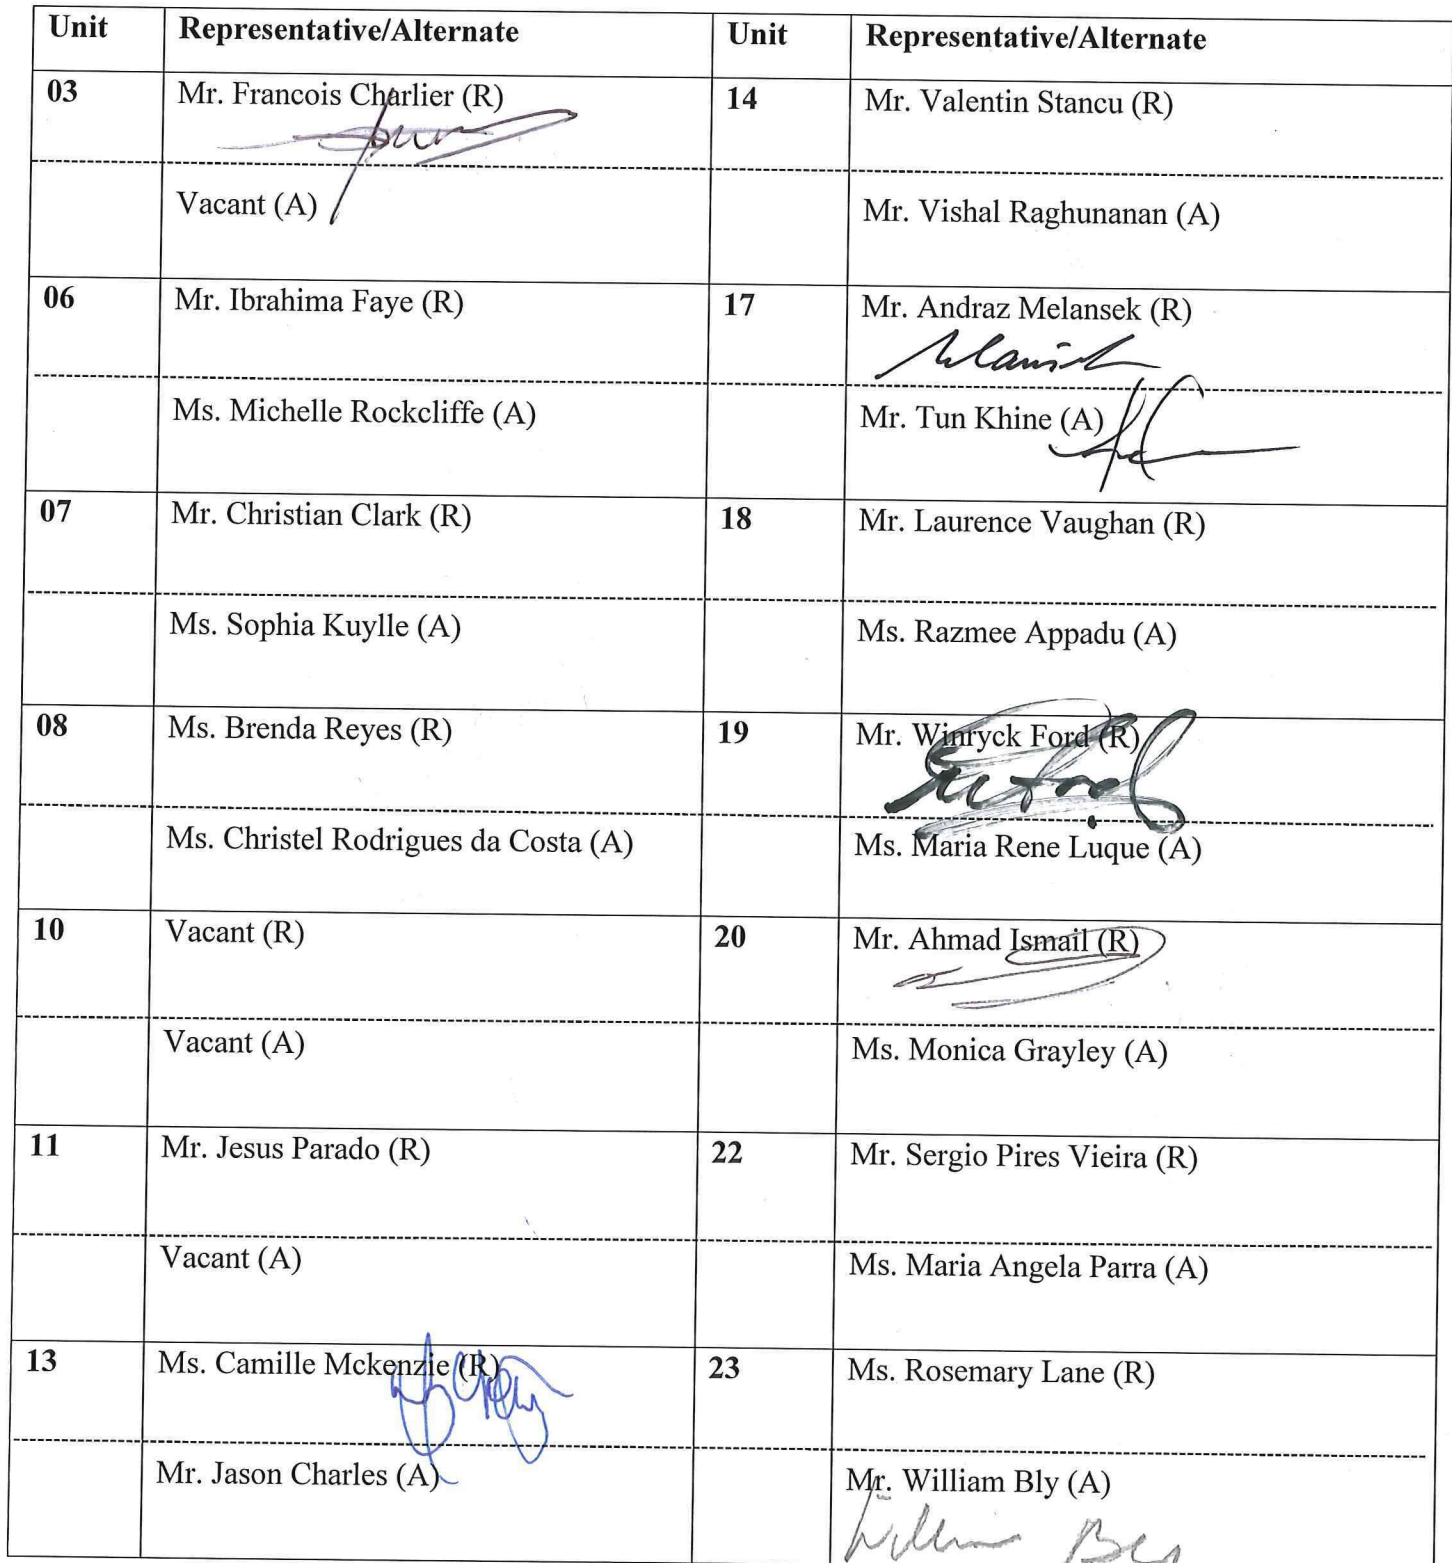 Unit Representative/Alternate Unit Representative/Alternate
03 Mr. Francois Charlier (R) 14 Mr. Valentin Stancu (R)
Vacant (A) Mr. Vishal Raghunanan (A)
06 Mr. Ibrahima Faye (R) 17 Mr. Andraz Melansek (R)
Ms. Michelle Rockcliffe (A) Mr. Tun Khine (A)
07 Mr. Christian Clark (R) 18 Mr. Laurence Vaughan (R)
Ms. Sophia Kuylle (A) Ms. Razmee Appadu (A)
08 Ms. Brenda Reyes (R) 19 Mr. Winryck Ford (R)
Ms. Christel Rodrigues da Costa (A) Ms. Maria Rene Luque (A)
10 Vacant (R) 20 Mr. Ahmad Ismail (R)
Vacant (A) Ms. Monica Grayley (A)
11 Mr. Jesus Parado (R) 22 Mr. Sergio Pires Vieira (R)
Vacant (A) Ms. Maria Angela Parra (A)
13 Ms. Camille Mckenzie (R) 23 Ms. Rosemary Lane (R)
Mr. Jason Charles (A) Mr. William Bly (A)
William Bly